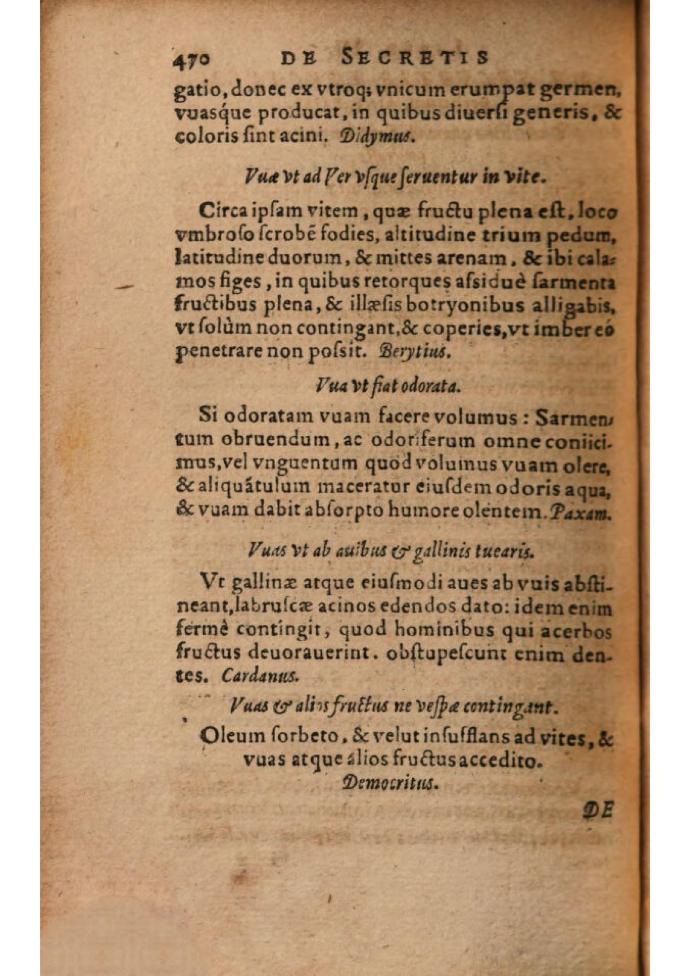 470 DE SECRETIS
gatio, donec ex vtroq; vnicum erumpat germen,
vuasq́ue producat, in quibus diuersi generis, &
coloris sint acini. Didymus.
Vuæ vt ad Ver vsque seruentur in vite.
Circa ipsam vitem, quæ fructu plena est, loco
vmbroso scrobẽ fodies, altitudine trium pedum,
latitudine duorum, & mittes arenam, & ibi cala-
mos figes, in quibus retorques assiduè sarmenta
fructibus plena, & illæsis botryonibus alligabis,
vt solùm non contingant, & coperies, vt imber eò
penetrare non possit. Berytius.
Vua vt fiat odorata.
Si odoratam vuam facere volumus: Sarmen-
tum obruendum, ac odoriferum omne coniici-
mus, vel vnguentum quod volumus vuam olere,
& aliquãtulum maceratur eiusdem odoris aqua,
& vuam dabit absorpto humore olentem. Paxam.
Vuas vt ab auibus & gallinis tuearis.
Vt gallinæ atque eiusmodi aues ab vuis absti-
neant, labruscæ acinos edendos dato: idem enim
fermè contingit, quod hominibus qui acerbos
fructus deuorauerint. obstupescunt enim den-
tes. Cardanus.
Vuas & alios fructus ne vespæ contingant.
Oleum sorbeto, & velut insufflans ad vites, &
vuas atque alios fructus accedito.
Democritus.
DE